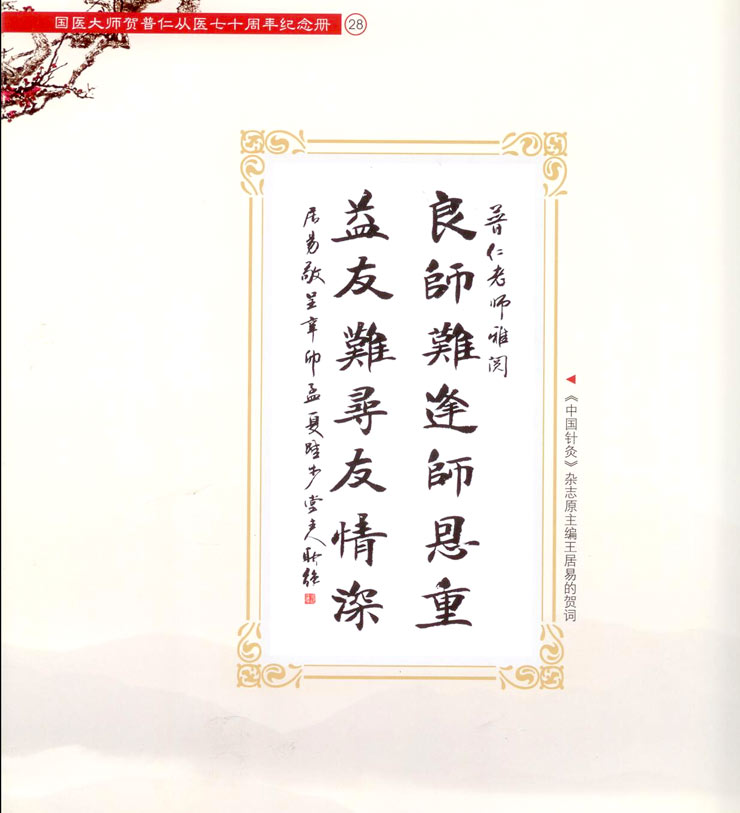 国医大师贺普仁从医七十周年纪念册 28
普仁老师雅阅
良師難逢師恩重
益友難尋友情深
居易敬呈辛卯孟夏
《中国针灸》杂志原主编王居易的贺词